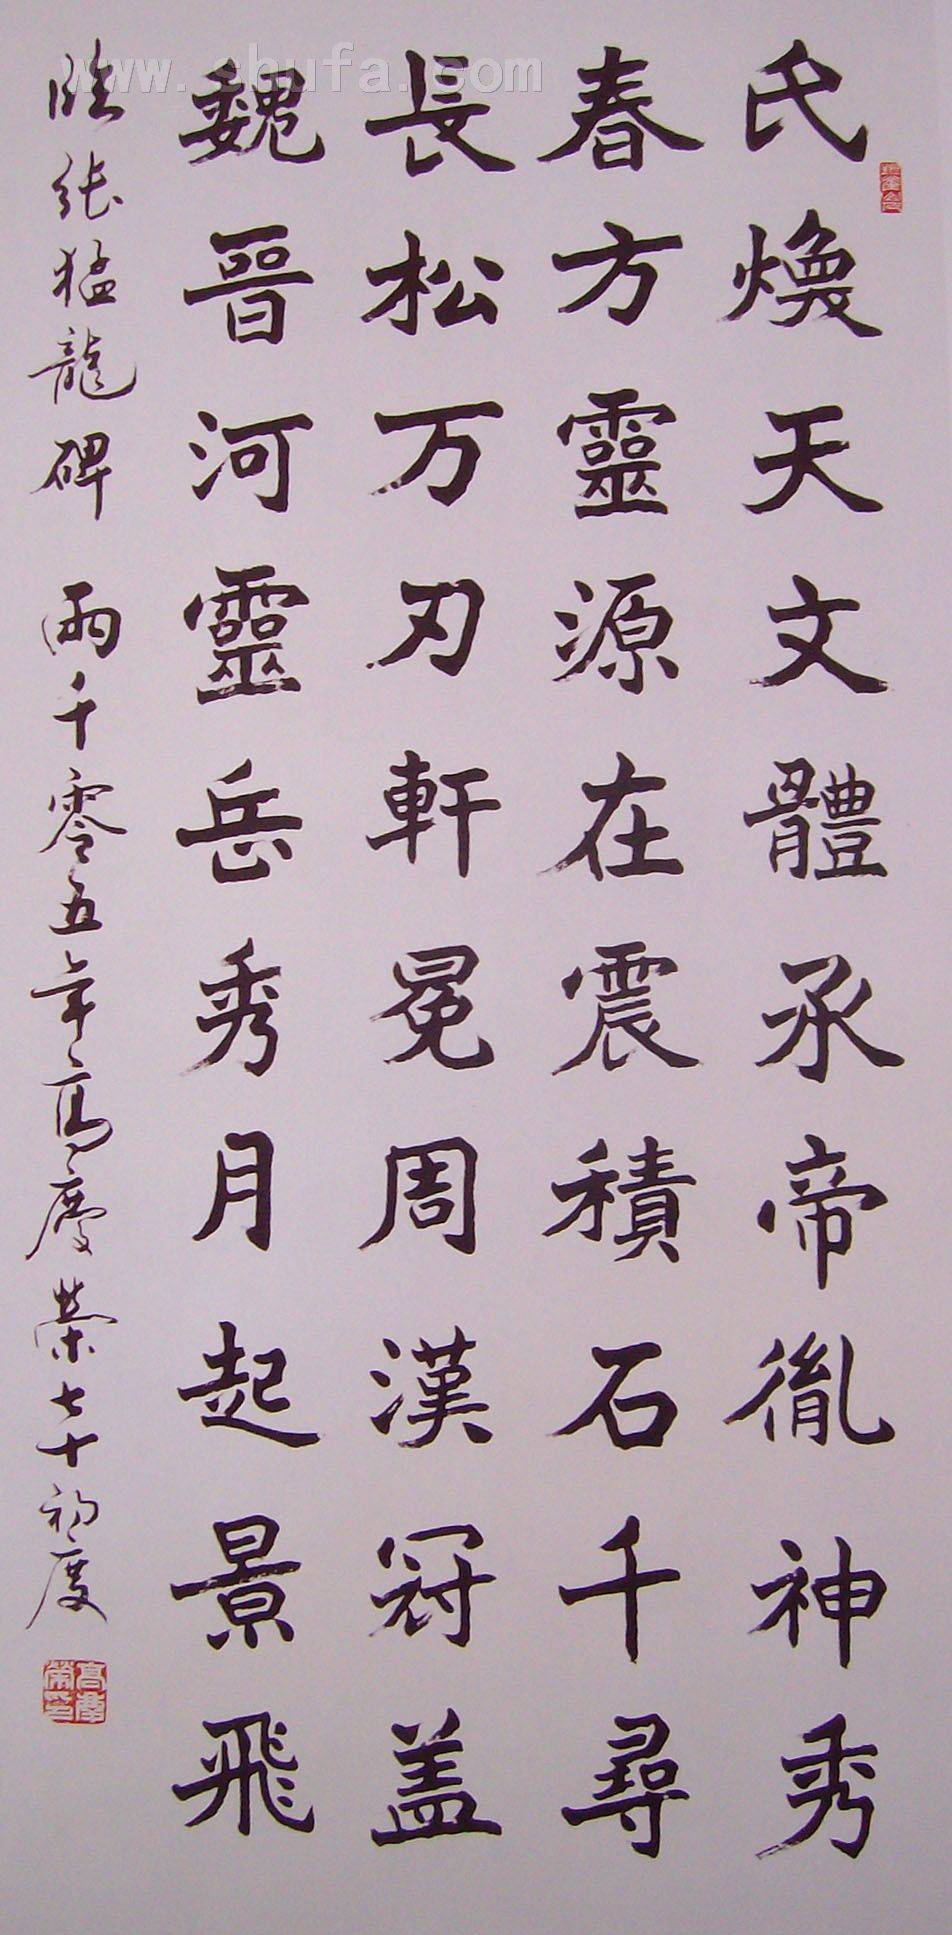 氏焕天文體承帝胤神秀
春方靈源在震積石千尋
長松万刃軒冕周漢冠盖
魏晉河靈岳秀月起景飛
临张猛龍碑 兩千零五年高慶荣七十初度
www.shufa.com